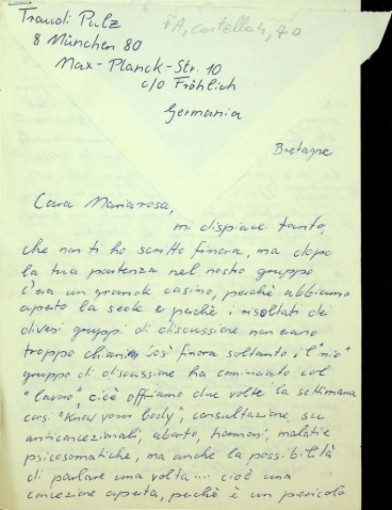 Traudi Pulz
8 München 80
Max-Planck-Str. 10
c/o Fröhlich
Germania
Bretagne
Cara Mariarosa,
mi dispiace tanto,
che non ti ho scritto finora, ma dopo
la tua partenza nel nostro gruppo
c'era un grande casino, perchè abbiamo
aperto la sede e perchè i risoltati dei
diversi gruppi di discussione non erano
troppo chiari, così finora soltanto il "mio"
gruppo di discussione ha cominciato col
"lavoro", cioè offriamo due volte la settimana
corsi "Know your body", consultazione su
anticoncezionali, aborto, hormoni, malatie
psicosomatiche, ma anche la possibilità
di parlare una volta.... cioè una
concezione aperta, perchè è un pericolo